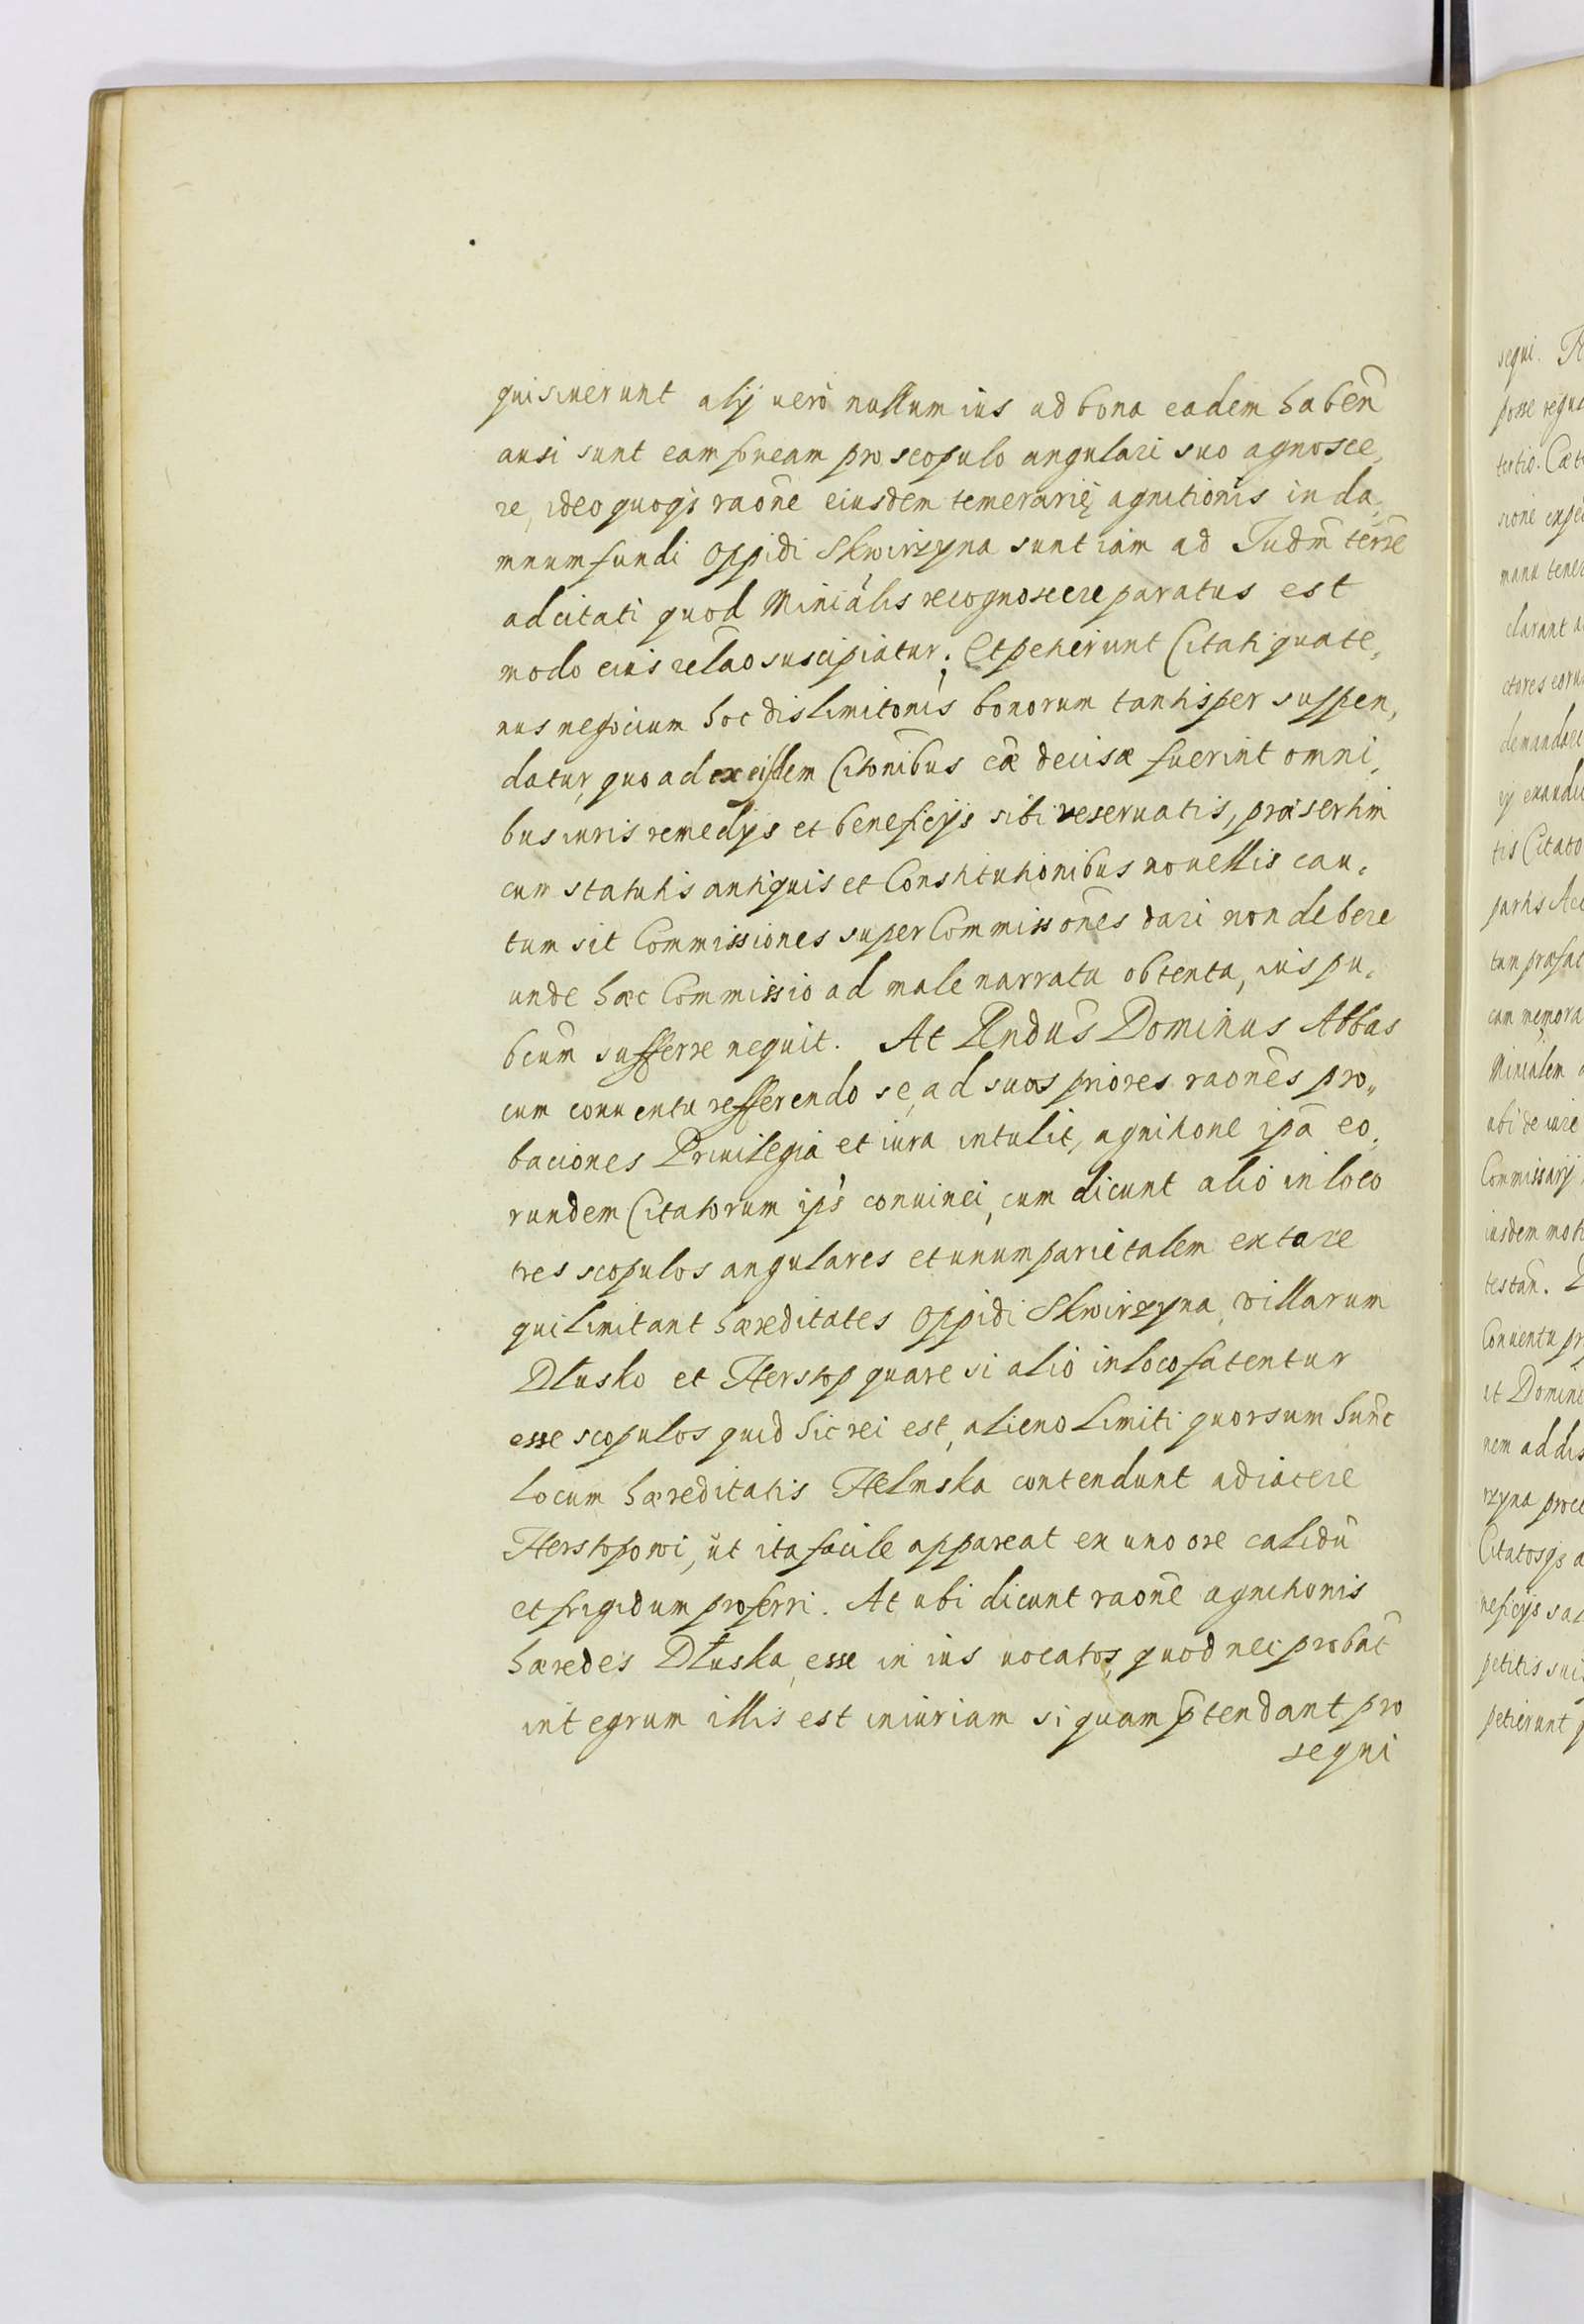 quisiuerunt alij uero nullum ius ad bona eadem haben̄
ausi sunt eam foueam pro scopulo angulari suo agnosce,
re, ideo quoqs raõne eiusdem temerarię agnitionis in da,
mnum fundi oppidi Skwirzyna sunt iam ad Judm̃ terre
adcitati quod Minialis recognoscere paratus est
modo eius relao suscipiatur. Et petierunt Citati quate,
nus negocium hoc dislimitonis bonorum tantisper suspen,
datur, quo ad ex eisdem Citonibus cæ decisæ fuerint omni,
bus iuris remedijs et beneficijs sibi reseruatis, præsertim
cum statutis antiquis et Constitutionibus nouellis cau,
tum sit Commissiones super Commissones dari non debere
unde hæc Commissio ad male narrata obtenta, ius pu,
bcum sufferre nequit. At Rndus Dominus Abbas
cum conuentu refferendo se, ad suos priores raones pro,,
baciones Priuilegia et iura intulit, agnitione ipa eo,
rundem Citatorum ips conuinci, cum dicunt alio in loco
tres scopulos angulares et unum parietalem extare
qui limitant hæreditates oppidi Skwirzyna, villarum
Dłusko et Herstop quare si alio in loco fatentur
esse scopulos quid hic rei est, alieno limiti quorsum hunc
locum hæreditatis Helmska contendunt adiacere
Herstopowi, ut ita facile appareat ex uno ore calidu
et frigidum proferri. At ubi dicunt raone agnitionis
hæredes Dłuska, esse in ius uocatos, quod nec probat
integrum illis est iniuriam si quam ptendant pro
sequi
segui.
posse
tertio.
manu
clarant
demandari
tis Citato
partis
ubi de iure
Commissarij
iusdem
Conuentu
et Domini
nem ad dis
Citatosqs
petitis suis
petierunt